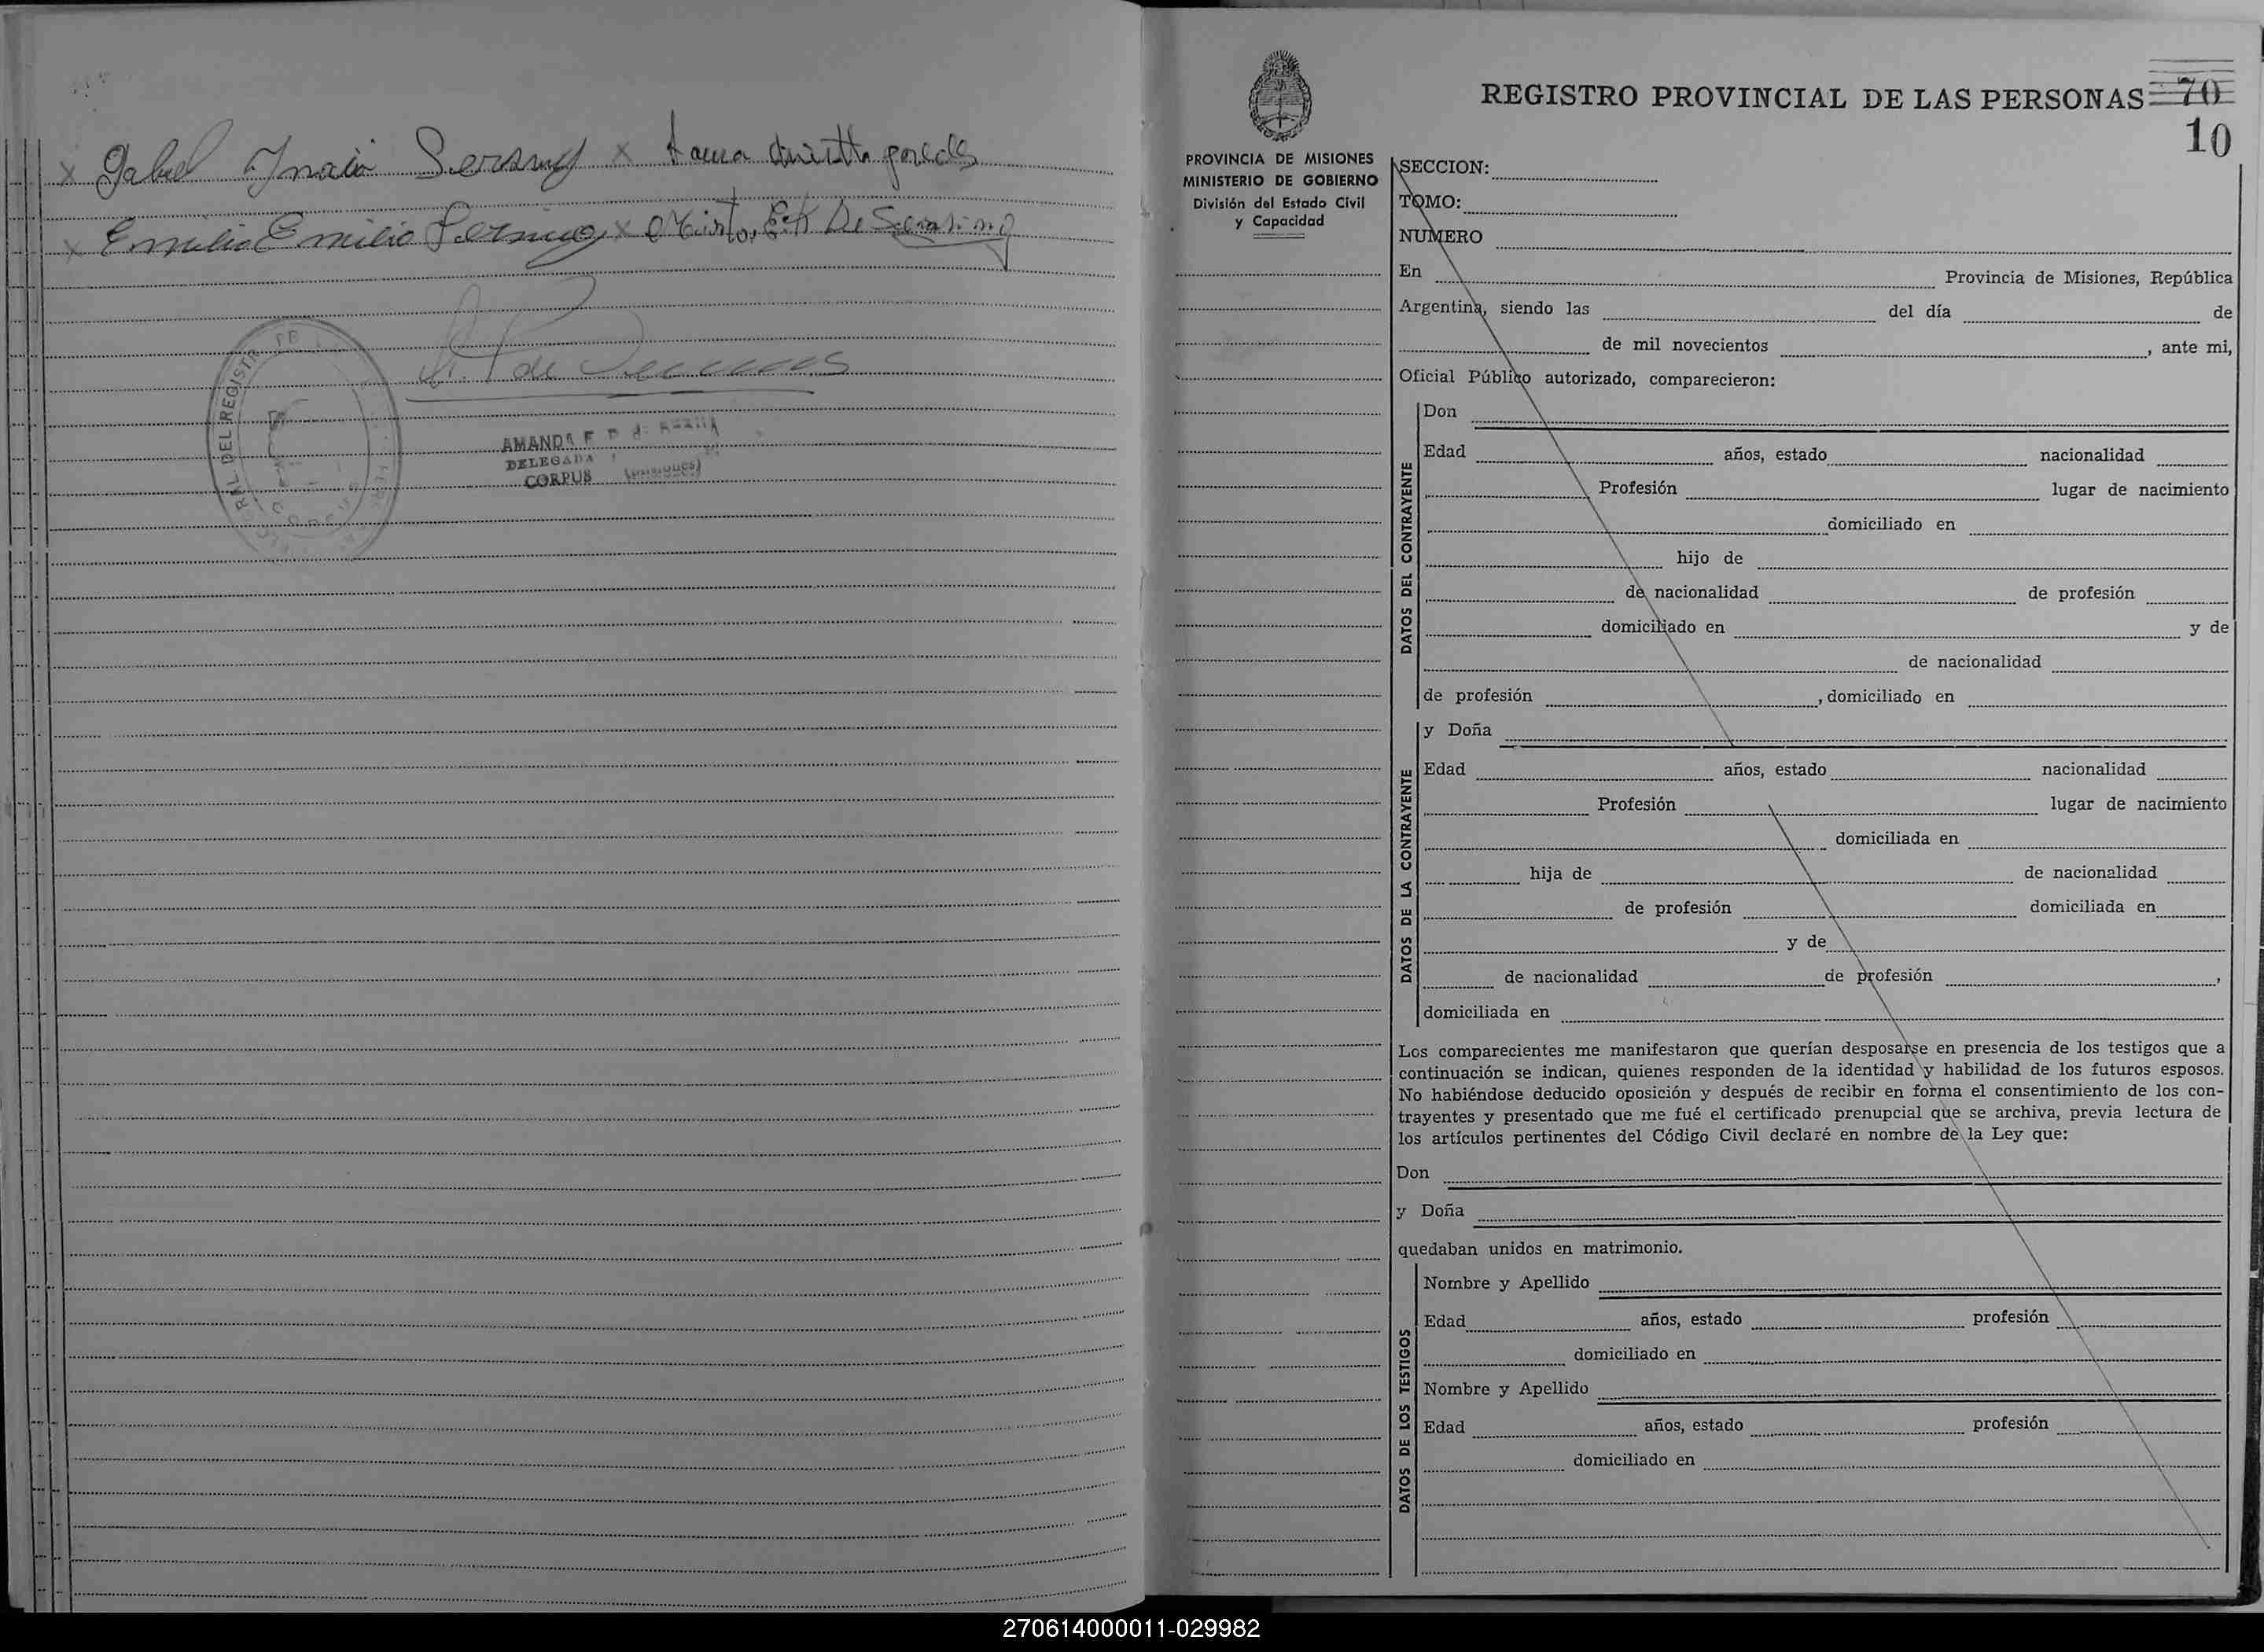 x Gabriel Ignacio x
x Emilio Emilio x De
AMANDA F
DELEGADA
CORPUS (Misiones)
RAL DEL REGISTR
CORPUS
REGISTRO PROVINCIAL DE LAS PERSONAS 70
10
PROVINCIA DE MISIONES
MINISTERIO DE GOBIERNO
División del Estado Civil
y Capacidad
SECCION:
TOMO:
NUMERO
En Provincia de Misiones, República
Argentina, siendo las del día de
de mil novecientos , ante mi,
Oficial Público autorizado, comparecieron:
DATOS DEL CONTRAYENTE
Don
Edad años, estado nacionalidad
Profesión lugar de nacimiento
domiciliado en
hijo de
de nacionalidad de profesión
domiciliado en y de
de nacionalidad
de profesión , domiciliado en
DATOS DE LA CONTRAYENTE
y Doña
Edad años, estado nacionalidad
Profesión lugar de nacimiento
domiciliada en
hija de de nacionalidad
de profesión domiciliada en
y de
de nacionalidad de profesión ,
domiciliada en
Los comparecientes me manifestaron que querían desposarse en presencia de los testigos que a
continuación se indican, quienes responden de la identidad y habilidad de los futuros esposos.
No habiéndose deducido oposición y después de recibir en forma el consentimiento de los con-
trayentes y presentado que me fué el certificado prenupcial que se archiva, previa lectura de
los artículos pertinentes del Código Civil declaré en nombre de la Ley que:
Don
y Doña
quedaban unidos en matrimonio.
DATOS DE LOS TESTIGOS
Nombre y Apellido
Edad años, estado profesión
domiciliado en
Nombre y Apellido
Edad años, estado profesión
domiciliado en
270614000011-029982